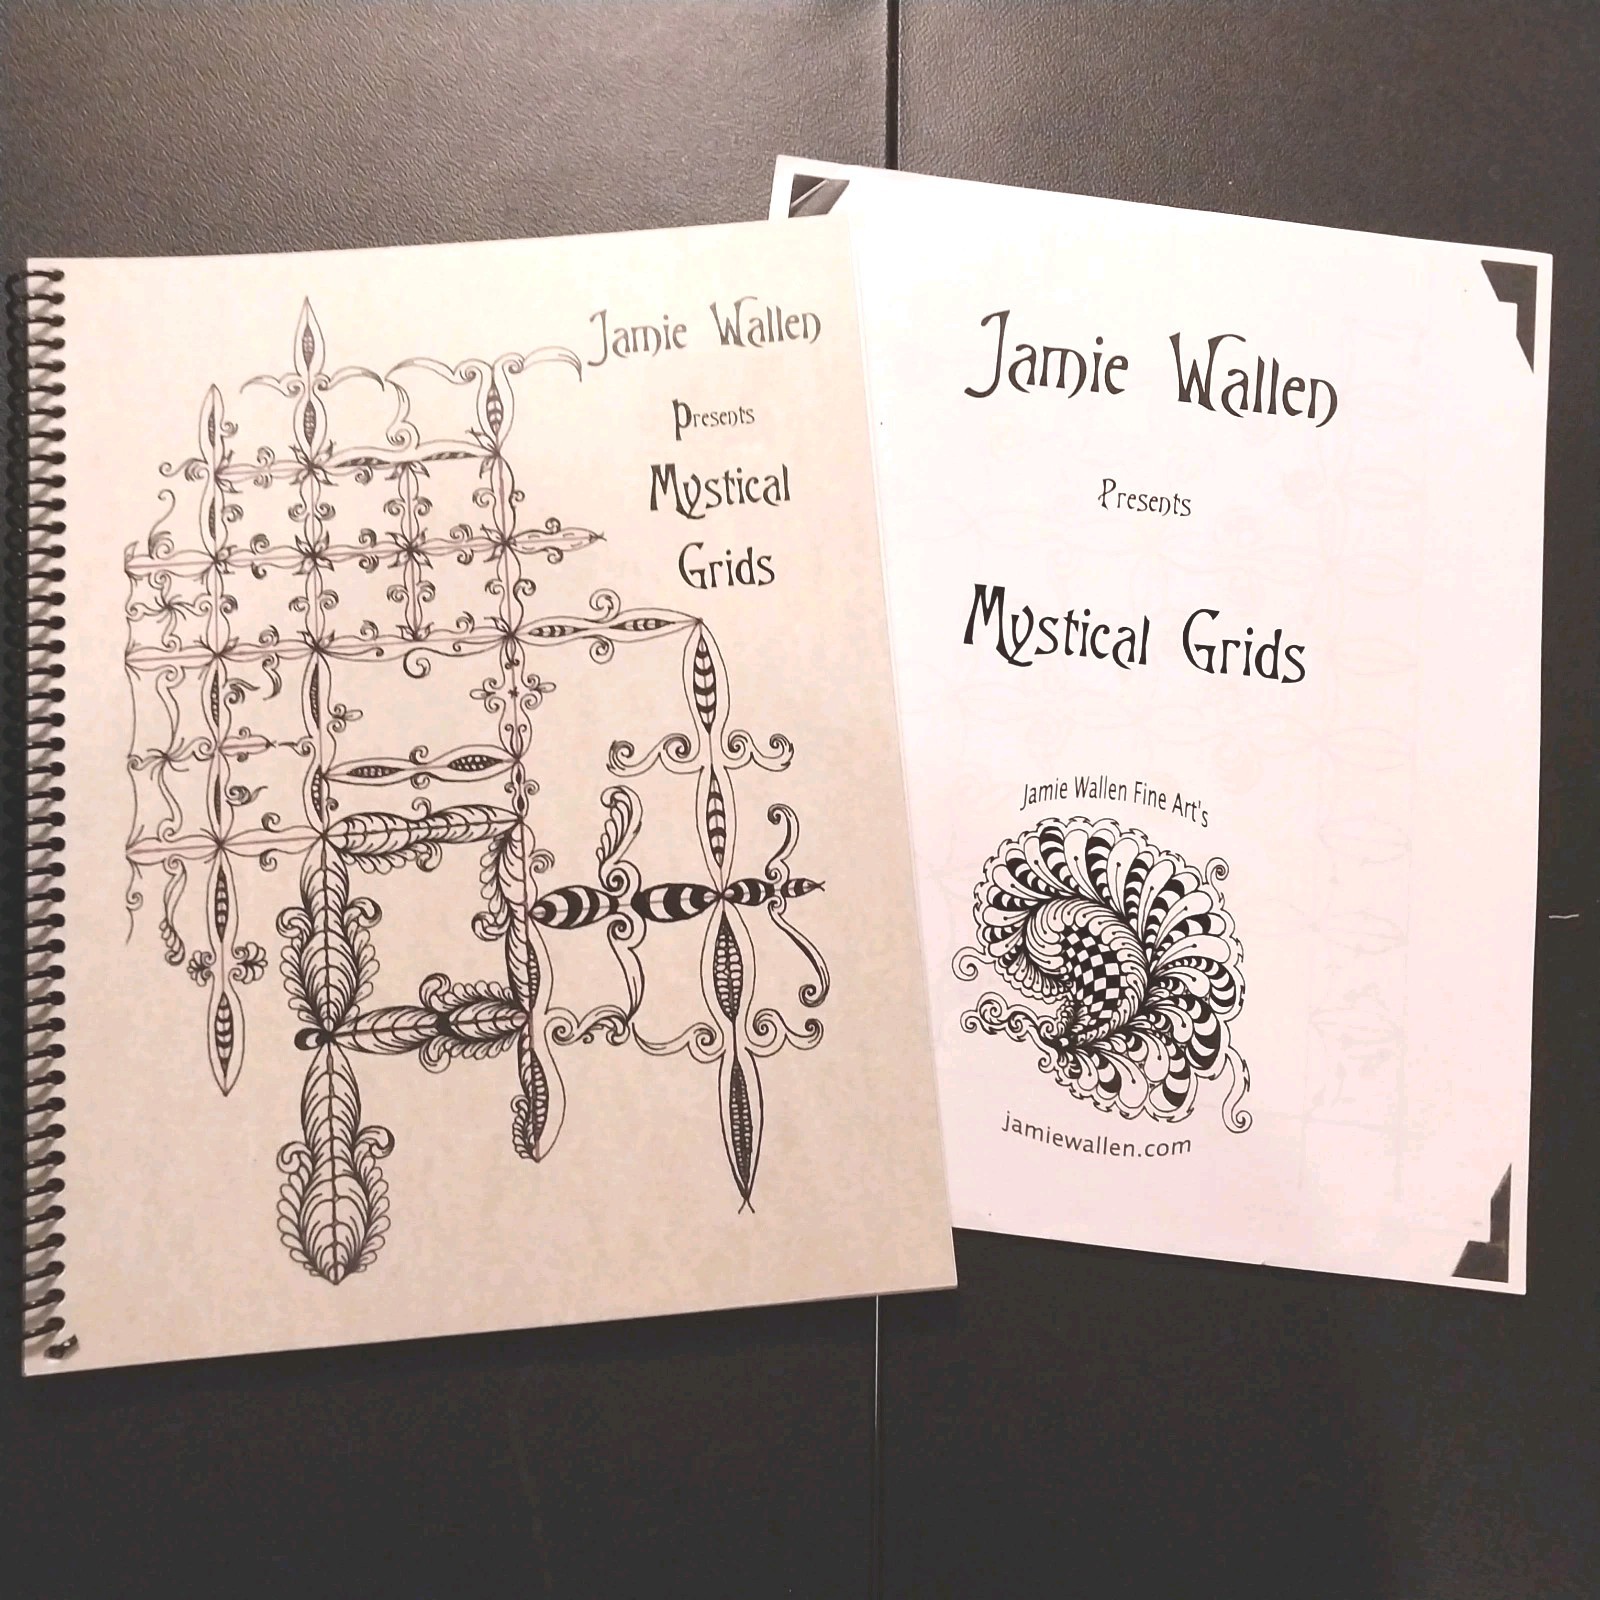 Jamie Wallen
Presents
Mystical
Grids
Jamie Wallen
Presents
Mystical Grids
Jamie Wallen Fine Art's
jamiewallen.com